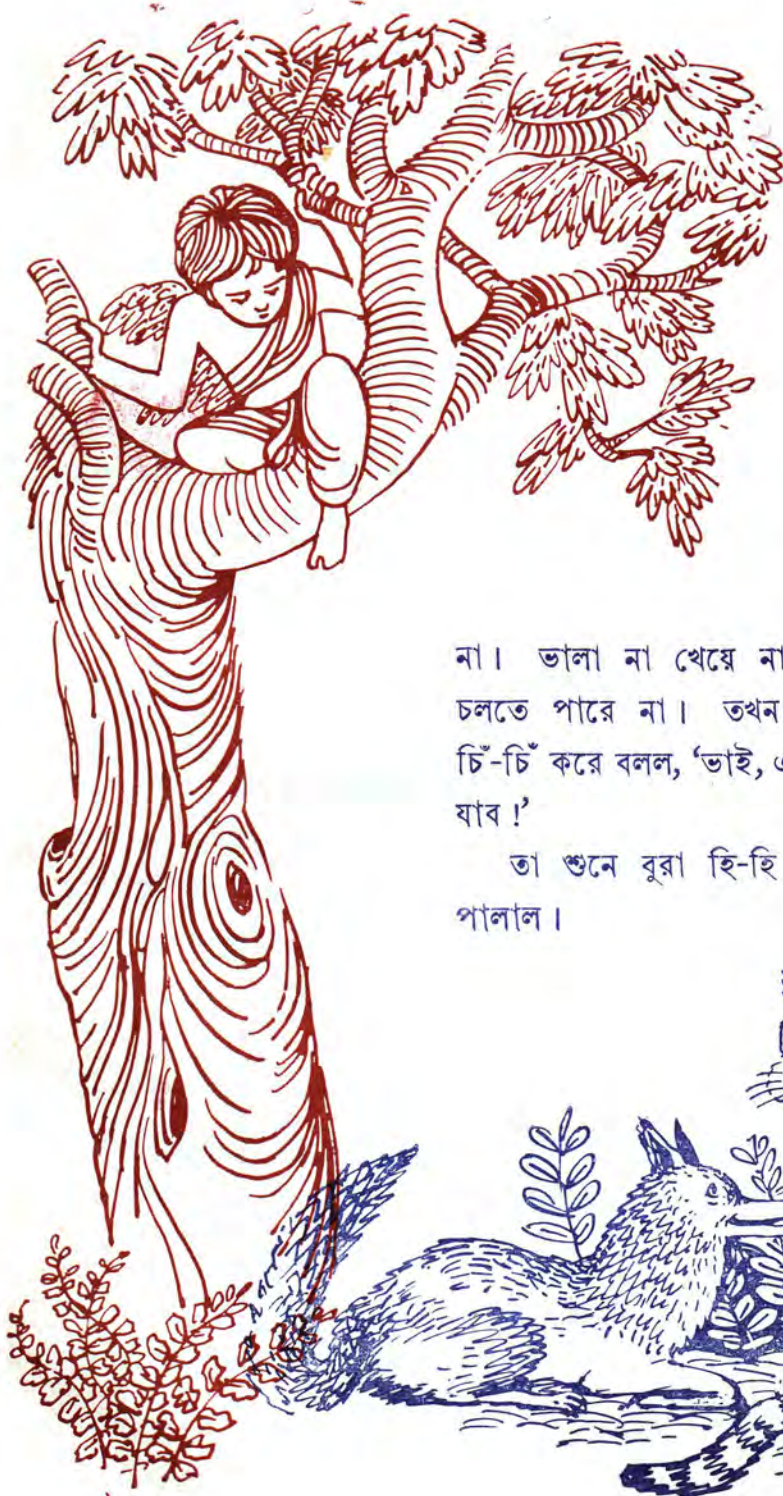 না। ভালা না খেয়ে না
চলতে পারে না। তখন
চিঁ-চিঁ করে বলল, ‘ভাই,
যাব!’
তা শুনে বুরা হি-হি
পালাল।